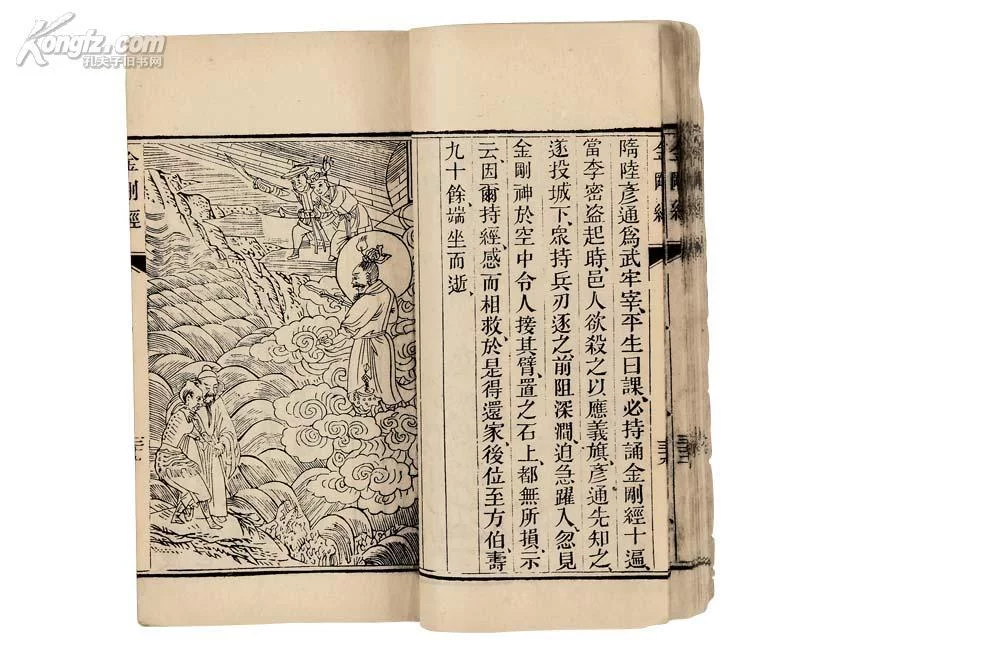 Kongfz.com
孔夫子旧书网
金剛經
隋陸彥通爲武牢宰、平生日課、必持誦金剛經十遍、
當李密盗起時、邑人欲殺之以應義旗、彥通先知之、
遂投城下、眾持兵刃逐之、前阻深澗、迫急躍入、忽見
金剛神於空中令人接其臂、置之石上、都無所損、示
云、因爾持經、感而相救、於是得還家、後位至方伯、壽
九十餘、端坐而逝、
金剛經